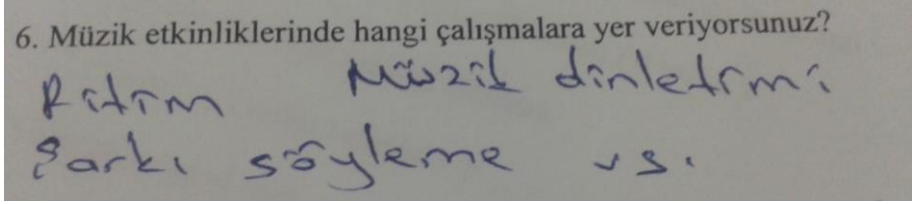 6. Müzik etkinliklerinde hangi çalışmalara yer veriyorsunuz?
Ritim Müzik dinletimi
Şarkı söyleme vs.